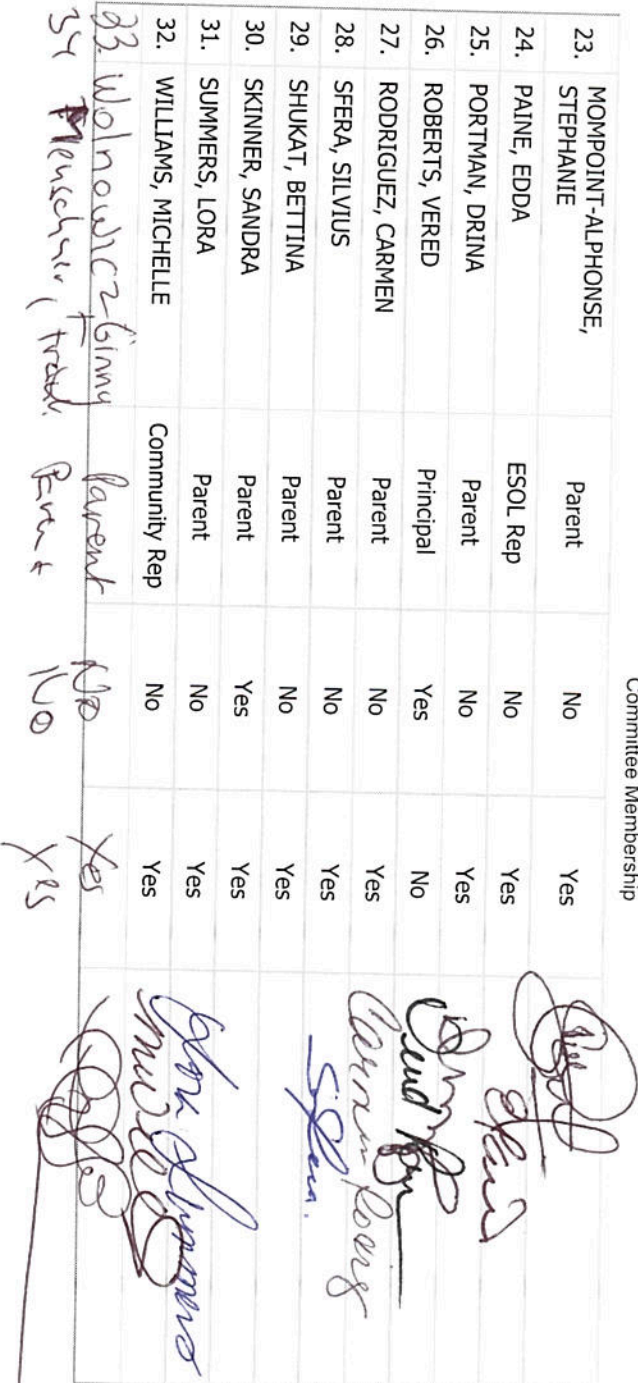 Committee Membership
23. MOMPOINT-ALPHONSE, STEPHANIE Parent No Yes
24. PAINE, EDDA ESOL Rep No Yes
25. PORTMAN, DRINA Parent No Yes
26. ROBERTS, VERED Principal Yes No
27. RODRIGUEZ, CARMEN Parent No Yes
28. SFERA, SILVIUS Parent No Yes
29. SHUKAT, BETTINA Parent No Yes
30. SKINNER, SANDRA Parent Yes Yes
31. SUMMERS, LORA Parent No Yes Lora Summers
32. WILLIAMS, MICHELLE Community Rep No Yes
33. Wolnowicz Ginny Parent No Yes
34 Parent No Yes